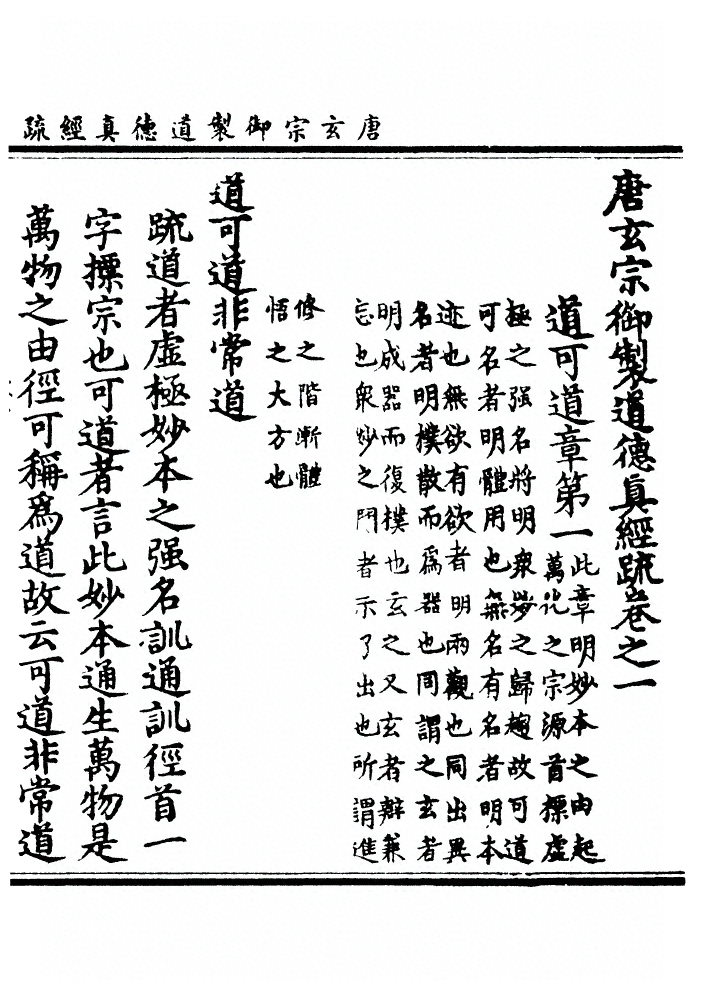 唐玄宗御製道德真經疏
唐玄宗御製道德真經疏卷之一
道可道章第一
此章明妙本之由起
萬化之宗源首標虛
極之强名將明衆妙之歸趨故可道
可名者明體用也無名有名者明本
迹也無欲有欲者明兩觀也同出異
名者明樸散而爲器也同謂之玄者
明成器而復樸也玄之又玄者辯兼
忘也衆妙之門者示了出也所謂進
修之階漸體
悟之大方也
道可道非常道
疏道者虛極妙本之强名訓通訓徑首一
字摽宗也可道者言此妙本通生萬物是
萬物之由徑可稱爲道故云可道非常道